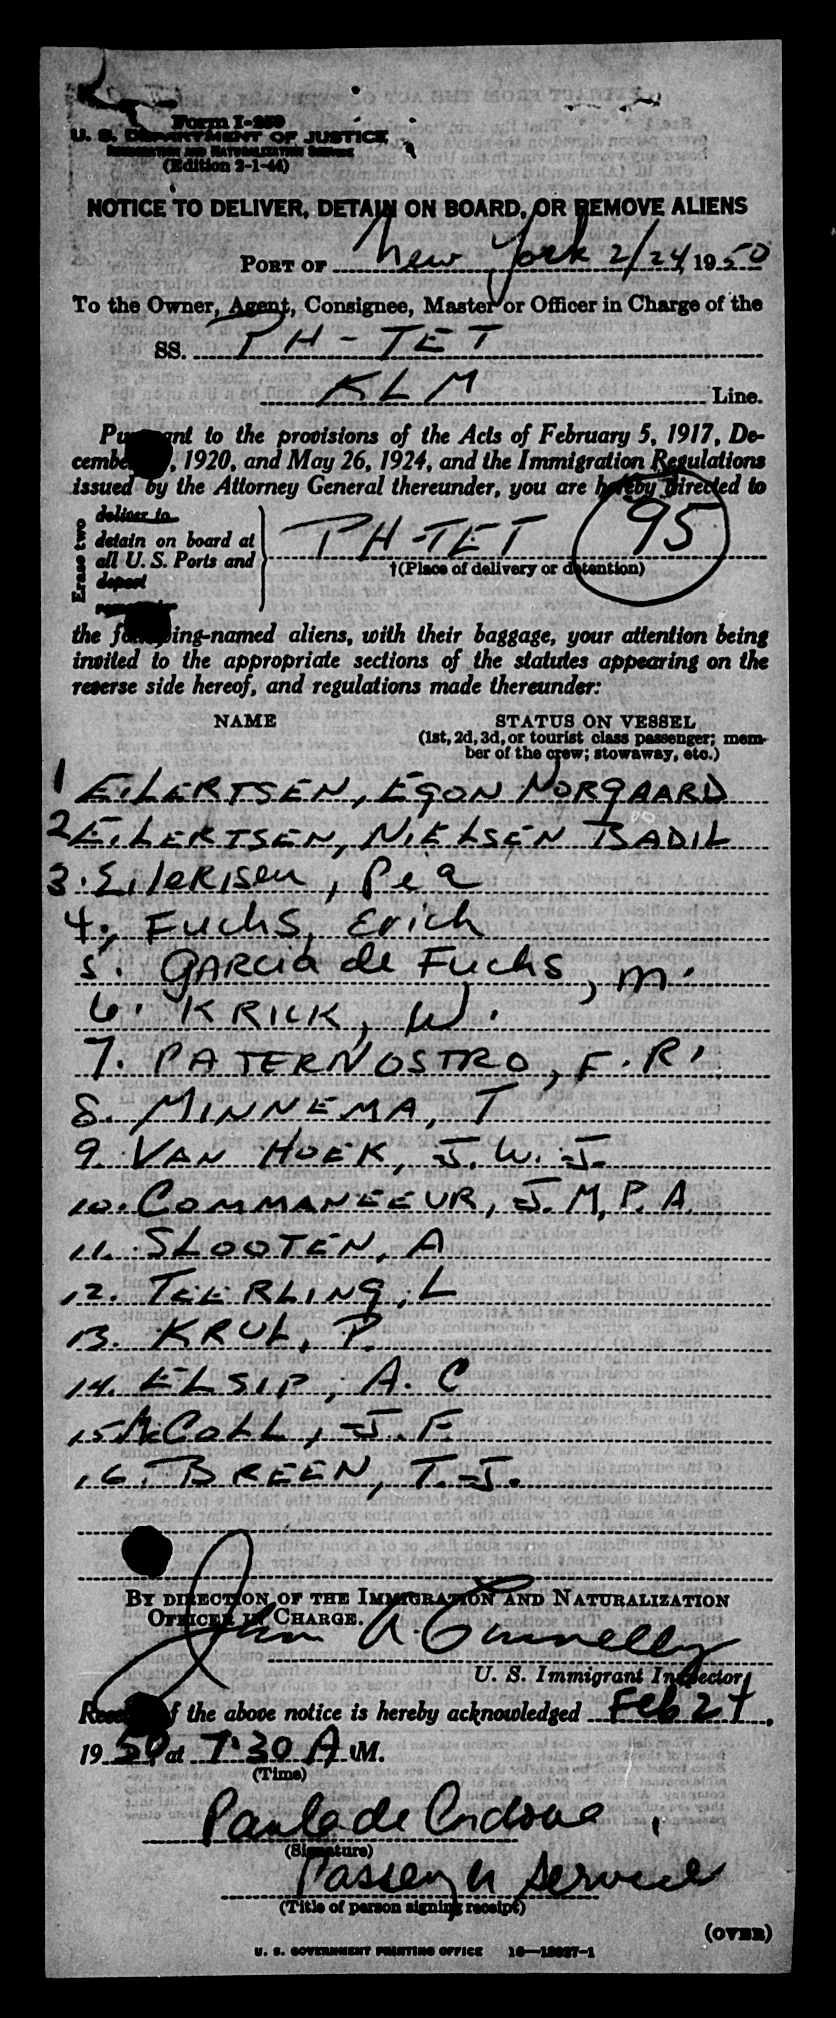 Form I-259
U. S. DEPARTMENT OF JUSTICE
IMMIGRATION AND NATURALIZATION SERVICE
(Edition 2-1-44)
NOTICE TO DELIVER, DETAIN ON BOARD, OR REMOVE ALIENS
PORT OF New York 2/24, 1950
To the Owner, Agent, Consignee, Master or Officer in Charge of the
SS. PH-TET
KLM Line.
Pursuant to the provisions of the Acts of February 5, 1917, De-
cember , 1920, and May 26, 1924, and the Immigration Regulations
issued by the Attorney General thereunder, you are hereby directed to
Erase two
deliver to
detain on board at
all U. S. Ports and
deport
PH-TET 95
†(Place of delivery or detention)
the following-named aliens, with their baggage, your attention being
invited to the appropriate sections of the statutes appearing on the
reverse side hereof, and regulations made thereunder:
NAME STATUS ON VESSEL
(1st, 2d, 3d, or tourist class passenger; mem-
ber of the crew; stowaway, etc.)
1 EILERTSEN, EGON NORGAARD
2 EILERTSEN, NIELSEN BADIL
3. EileRtsen, Pia
4. Fuchs, Erich
5. GARCia de Fuchs, M.
6. KRICK, W.
7. PATERNOSTRO, F. R.
8. MINNEMA, T
9. VAN HOEK, J. W. J.
10. COMMANEEUR, J. M, P. A.
11. SLOOTEN, A
12. TEERLING, L
13. KRUL, P.
14. ELSIP, A. C
15 McCOLL, J. F.
16. BREEN, T. J.
BY DIRECTION OF THE IMMIGRATION AND NATURALIZATION
OFFICER IN CHARGE.
John A. Connelly
U. S. Immigrant Inspector
Receipt of the above notice is hereby acknowledged Feb 24,
1950, at 7:30 A M.
(Time)
Paula de Cordova
(Signature)
Passenger Service
(Title of person signing receipt)
(OVER)
U. S. GOVERNMENT PRINTING OFFICE